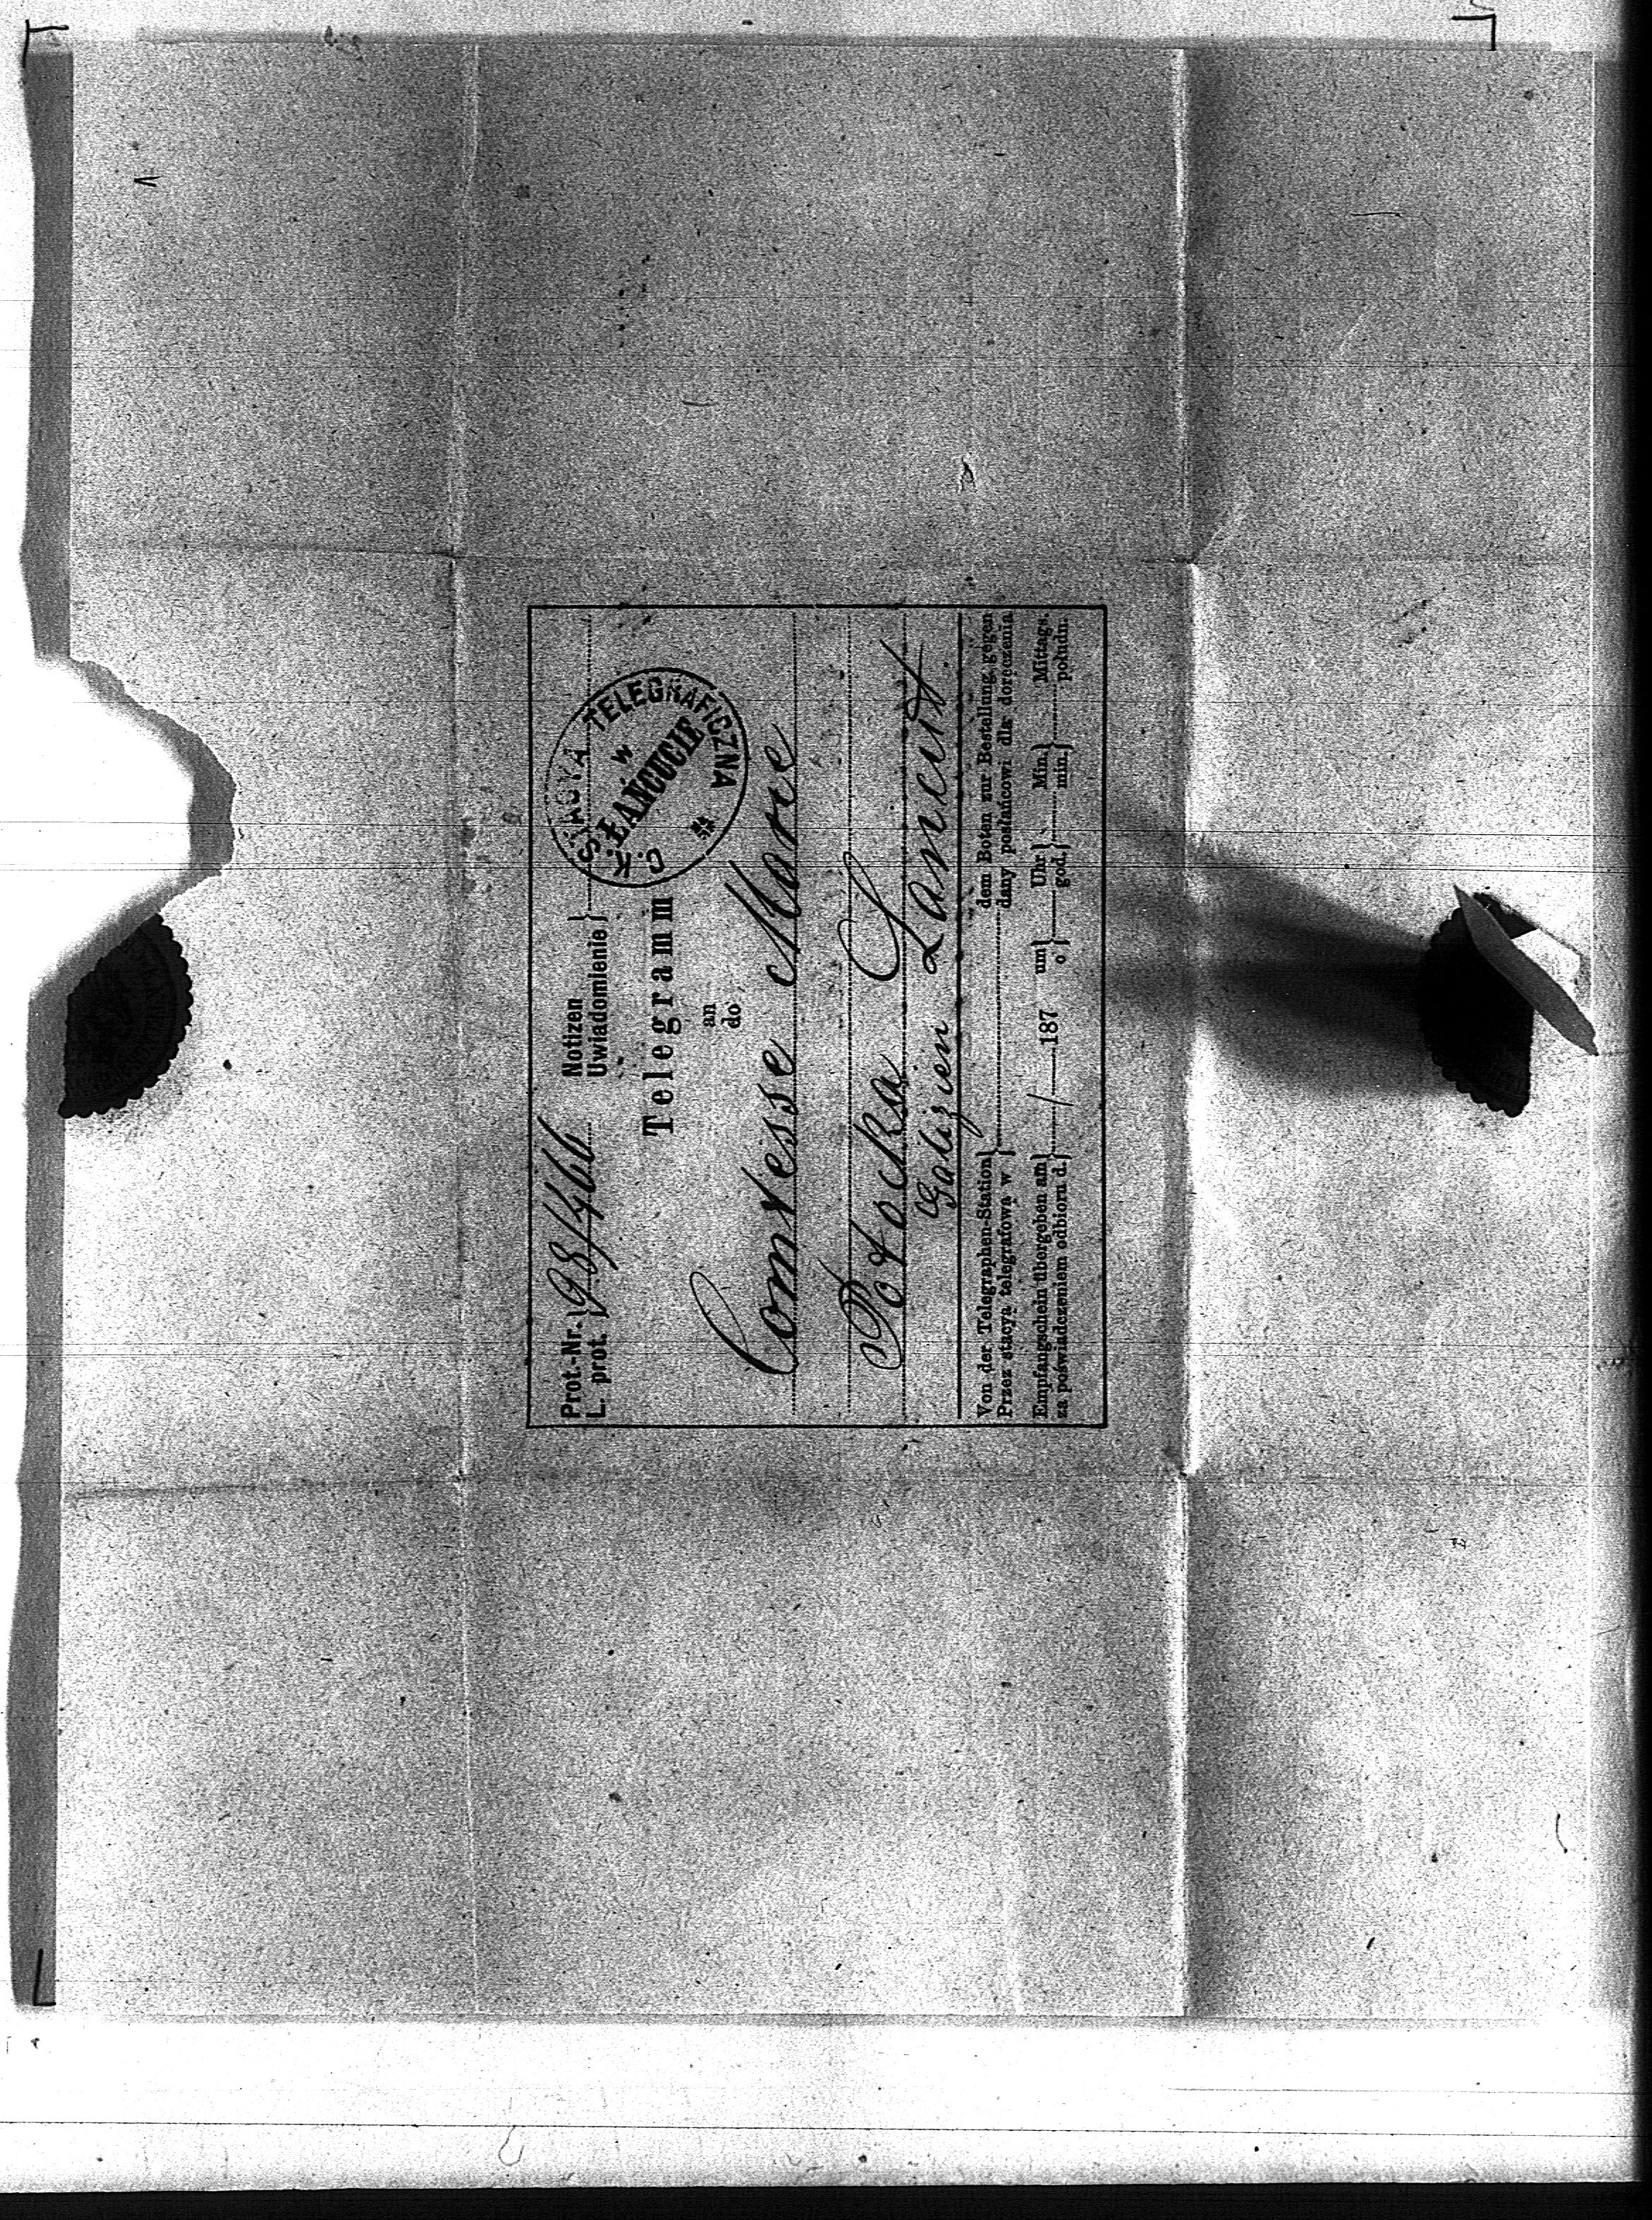 Prot.-Nr. } 98/466 Notizen }
L. prot. Uwiadomienie
C. K. STACYA TELEGRAFICZNA
w
ŁAŃCUCIE
Telegramm
an
do
Comtesse Marie
Potocka
Galizien Lancut
Von der Telegraphen-Station } dem Boten zur Bestellung gegen
Przez stacyą telegrafową w dany posłańcowi dla doręczenia
Empfangschein übergeben am } / 187 um } Uhr } Min. } Mittags.
za poświadczeniem odbioru d. o god. min. połudn.